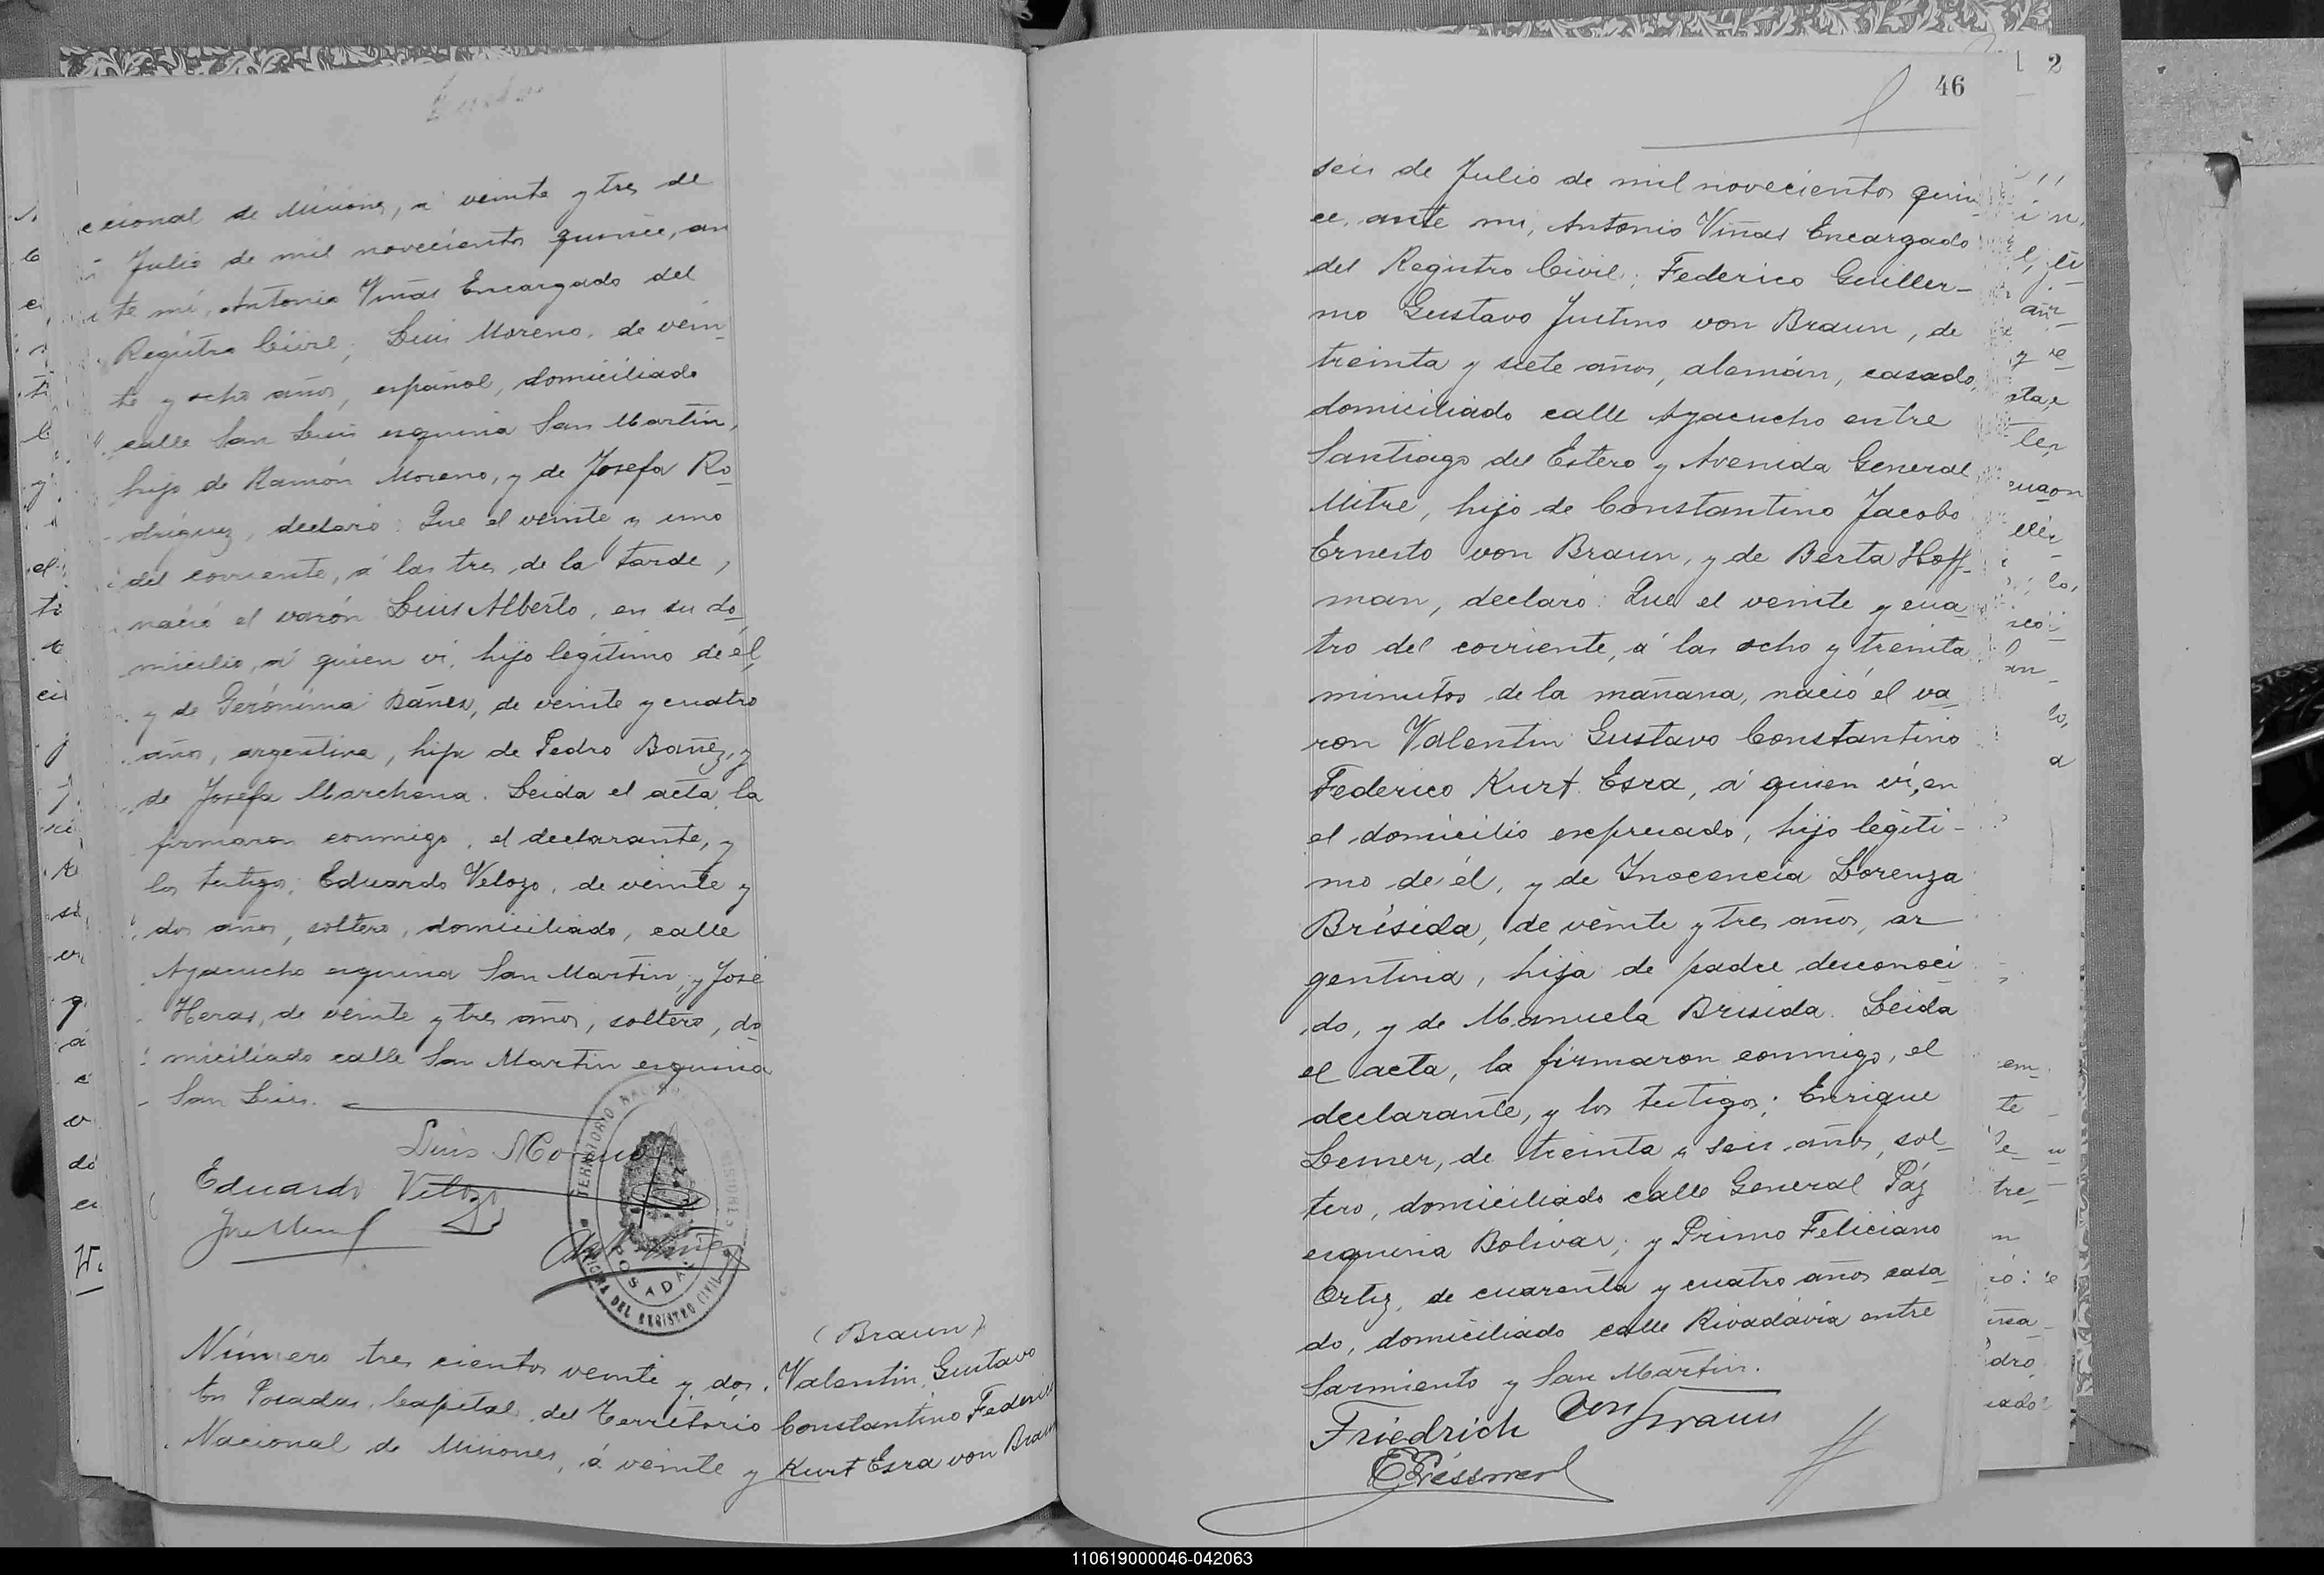 ccional de Misiones, á veinte y tres de
Julio de mil novecientos quince, an
te mí, Antonio Viñas Encargado del
Registro Civil; Luis Moreno, de vein
te y ocho años, español, domiciliado
calle San Luis esquina San Martin,
hijo de Ramón Moreno, y de Josefa Ro
driguez, declaró: Que el veinte y uno
del corriente, á las tres de la tarde,
nació el varón Luis Alberto, en su do
micilio, á quien vi, hijo legítimo de él,
y de Gerónima Báñez, de veinte y cuatro
años, argentina, hija de Pedro Bañez, y
de Josefa Marchena. Leida el acta, la
firmaron conmigo, el declarante, y
los testigos; Eduardo Velozo, de veinte y
dos años, soltero, domiciliado, calle
Ayacucho esquina San Martin; y José
Heras, de veinte y tres años, soltero, do
miciliado calle San Martin esquina
San Luis.
Luis Moreno
Eduardo Velozo
TERRITORIO NACIONAL DE MISIONES
POSADAS
OFICINA DEL REGISTRO CIVIL
Número tres cientos veinte y dos.
En Posadas, Capital del Territorio
Nacional de Misiones, á veinte y
(Braun)
Valentin Gustavo
Constantino Federico
Kurt Esra von Braun
46
seis de Julio de mil novecientos quin
ce, ante mi, Antonio Viñas Encargado
del Registro Civil; Federico Guiller-
mo Gustavo Justino von Braun, de
treinta y siete años, alemán, casado,
domiciliado calle Ayacucho entre
Santiago del Estero y Avenida General
Mitre, hijo de Constantino Jacobo
Ernesto von Braun, y de Berta Hoff-
man, declaró: Que el veinte y cua-
tro del corriente, á las ocho y treinta
minutos de la mañana, nació el va-
ron Valentin Gustavo Constantino
Federico Kurt Esra, á quien ví, en
el domicilio expresado, hijo legíti-
mo de él, y de Inocencia Lorenza
Brísida, de veinte y tres años, ar
gentina, hija de padre desconoci
do, y de Manuela Brisida. Leida
el acta, la firmaron conmigo, el
declarante, y los testigos; Enrique
Lesmer, de treinta y seis años, sol-
tero, domiciliado calle General Páz
esquina Bolivar; y Primo Feliciano
Ortiz, de cuarenta y cuatro años casa-
do, domiciliado calle Rivadavia entre
Sarmiento y San Martin.
Friedrich von Braun
2
110619000046-042063